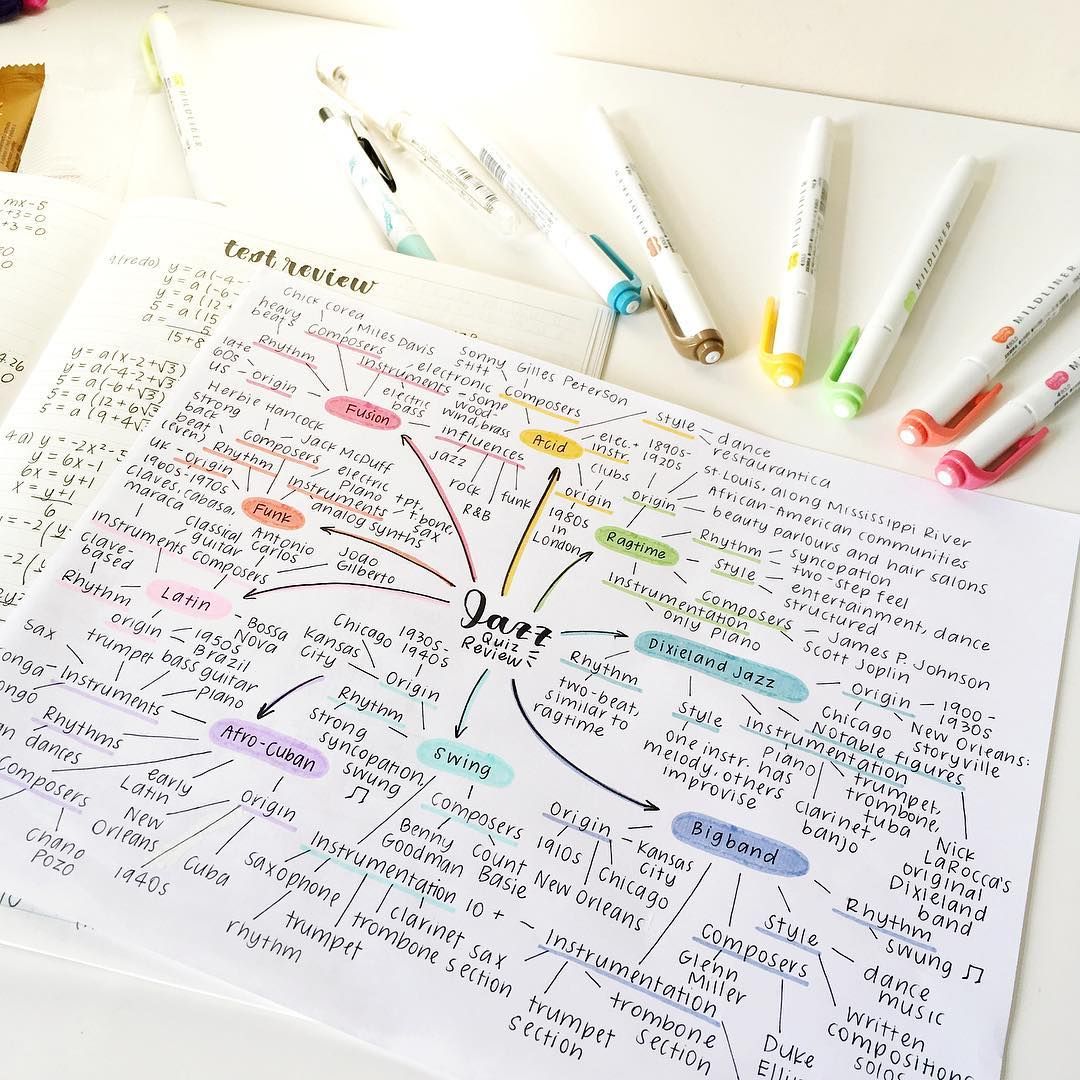 test review
mx-5
+3=0
+3=0
4(redo)
y = a(-4-
y = a(-6-
y = a(12+
5 = a(15
a = 5
15+8
y = a(x-2+√3)
y = a(-4-2+√3)
5 = a(-6+√3)
5 = a(12+6√3
5 = a(9+4√3
4a) y = -2x²-5
y = 6x-1
6x = y+1
x = y+1
6
MILDLINER
MILDLINER
MILDLINER
MILDLINER
MILDLINER
Jazz
Quiz
Review
Fusion
Chick Corea
Composers
Miles Davis
heavy
beats
Rhythm
late
60s
US - Origin
Instruments
electronic
electric
bass
some
wood-
wind, brass
influences
jazz
rock
R&B
funk
Acid
Sonny
Stitt
Gilles Peterson
Composers
Style - dance
restaurantica
elec.+
instr.
clubs
origin
1980s
in
London
Funk
Herbie Hancock
Composers
Jack McDuff
strong
back
beat
(even)
Rhythm
UK - Origin
1960s-
1970s
Instruments
electric
piano
analog synths
tpt,
t.bone,
sax
Ragtime
1890s-
1920s
Origin
St. Louis, along Mississippi River
African-American communities
beauty parlours and hair salons
Rhythm - syncopation
two-step feel
Style - entertainment, dance
structured
Composers - James P. Johnson
Scott Joplin
Instrumentation
only piano
Latin
claves, cabasa,
maraca
Classical
guitar
Instruments
Composers
Antonio
Carlos
Joao
Gilberto
clave-
based
Rhythm
origin
1950s
Brazil
Bossa
Nova
Dixieland Jazz
Rhythm
two-beat,
similar to
ragtime
Style
one instr. has
melody, others
improvise
Origin - 1900-
1930s
Chicago
New Orleans:
Storyville
Instrumentation
Piano
Clarinet,
banjo
trumpet,
trombone,
tuba
Notable figures
Nick
LaRocca's
original
Dixieland
band
Afro-Cuban
sax
trumpet
bass guitar
Piano
Instruments
Rhythms
early
Latin
dances
Composers
Chano
Pozo
Origin
New
Orleans
1940s
Cuba
Swing
Chicago
1930s-
1940s
Kansas
City
Origin
Rhythm
strong
syncopation,
swung ♫
Composers
Benny
Goodman
Count
Basie
Instrumentation
saxophone
rhythm
trumpet
trombone section
clarinet
Bigband
Origin
Kansas
City
1910s
Chicago
New Orleans
Rhythm
swung ♫
Style - dance
music
Written
compositions
solos
Composers
Glenn
Miller
Duke
10+ - Instrumentation
sax
section
trumpet
section
trombone
section